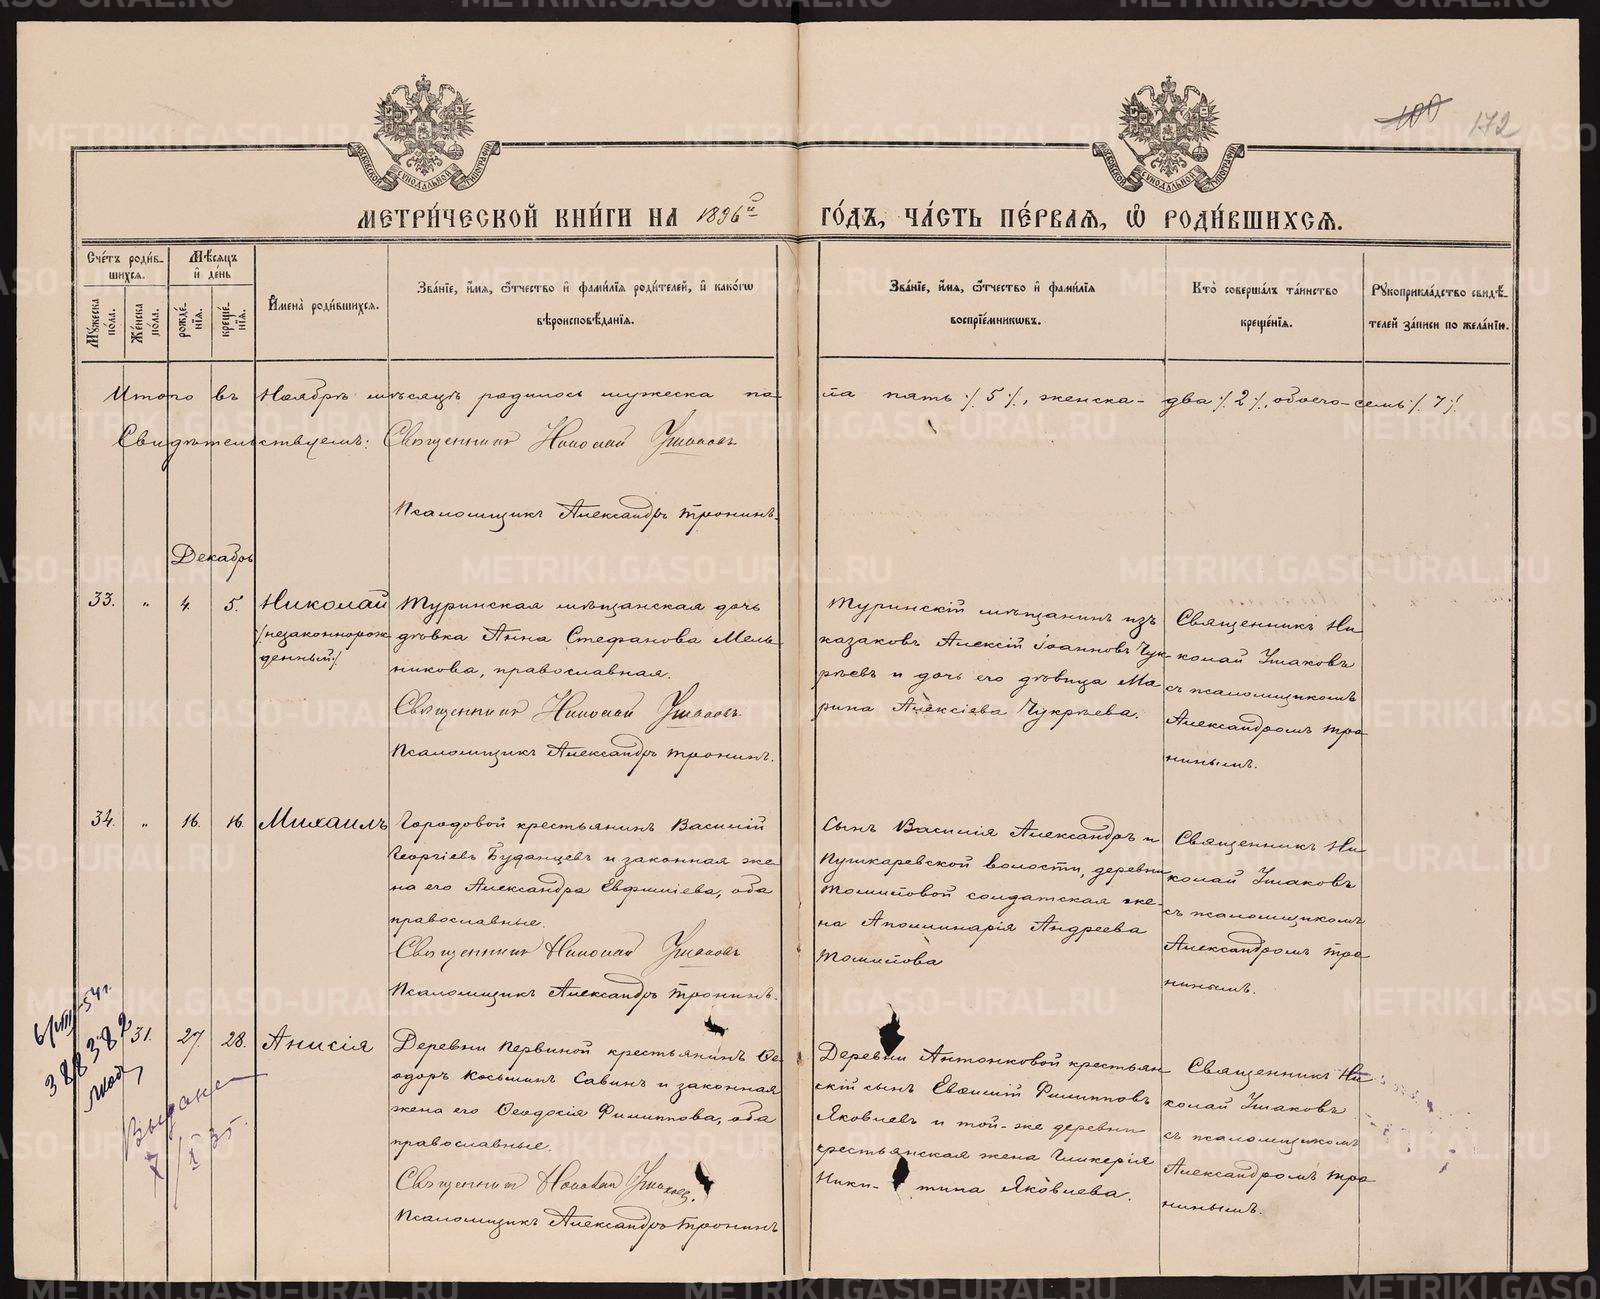 100 172
МЕТРИ́ЧЕСКОЙ КНИ́ГИ НА 1896й ГО́ДЪ, ЧА́СТЬ ПЕ́РВАЯ, Ѽ РОДИ́ВШИХСЯ.
Сче́тъ роди́вшихся.
Мꙋ́жеска по́ла.
Же́нска по́ла.
Мѣ́сяцъ и́ де́нь
рожде́нїя.
креще́нїя.
И҆мена̀ роди́вшихся.
Зва́нїе, и҆́мя, ѻ҆́тчество и҆ фами́лїя роди́телей, и҆ како́гѡ вѣроисповѣ́данїя.
Зва́нїе, и҆́мя, ѻ҆́тчество и҆ фами́лїя воспрїе́мникѡвъ.
Кто̀ соверша́лъ та́инство креще́нїя.
Рꙋкоприкла́дство свидѣ́телей за́писи по жела́нїю.
Итого въ Ноябрѣ мѣсяцѣ родилось мужеска пола пять /5/, женска- два /2/, обоего-семь /7/.
Свидѣтельствуемъ: Священникъ Николай Ушаковъ
Псаломщикъ Александръ Тронинъ.
Декабрь
33. " 4. 5.
Николай
/незаконнорож
денный/
Туринская мѣщанская дочь
дѣвка Анна Стефанова Мель
никова, православная.
Священникъ Николай Ушаковъ
Псаломщикъ Александръ Тронинъ.
Туринскій мѣщанинъ изъ
казаковъ Алексій Іоанновъ Чук-
рѣевъ и дочь его дѣвица Ма
рина Алексіева Чукрѣева.
Священникъ Ни
колай Ушаковъ
съ псаломщикомъ
Александромъ Тро
нинымъ.
34. " 16. 16.
Михаилъ
Городовой крестьянинъ Василій
Георгіевъ Буданцевъ и законная же
на его Александра Евфиміева, оба
православные.
Священникъ Николай Ушаковъ
Псаломщикъ Александръ Тронинъ.
Сынъ Василія Александръ и
Пушкаревской волости, деревни
Томиловой солдатская же-
на Аполлинарія Андреева
Томилова
Священникъ Ни
колай Ушаковъ
съ псаломщикомъ
Александромъ Тро
нинымъ.
6/VIII-54 г.
388382
31. 27. 28.
Анисія
Деревни Первиной крестьянинъ Ѳе
одоръ Косьминъ Савинъ и законная
жена его Ѳеодосія Филиппова, оба
православные.
Священникъ Николай Ушаковъ.
Псаломщикъ Александръ Тронинъ
Деревни Антонковой крестьян
скій сынъ Евѳимій Филипповъ
Яковлевъ и той-же деревни
крестьянская жена Гликерія
Ники- тина Яковлева.
Священникъ Ни
колай Ушаковъ
съ псаломщикомъ
Александромъ Тро
нинымъ.
Выдана